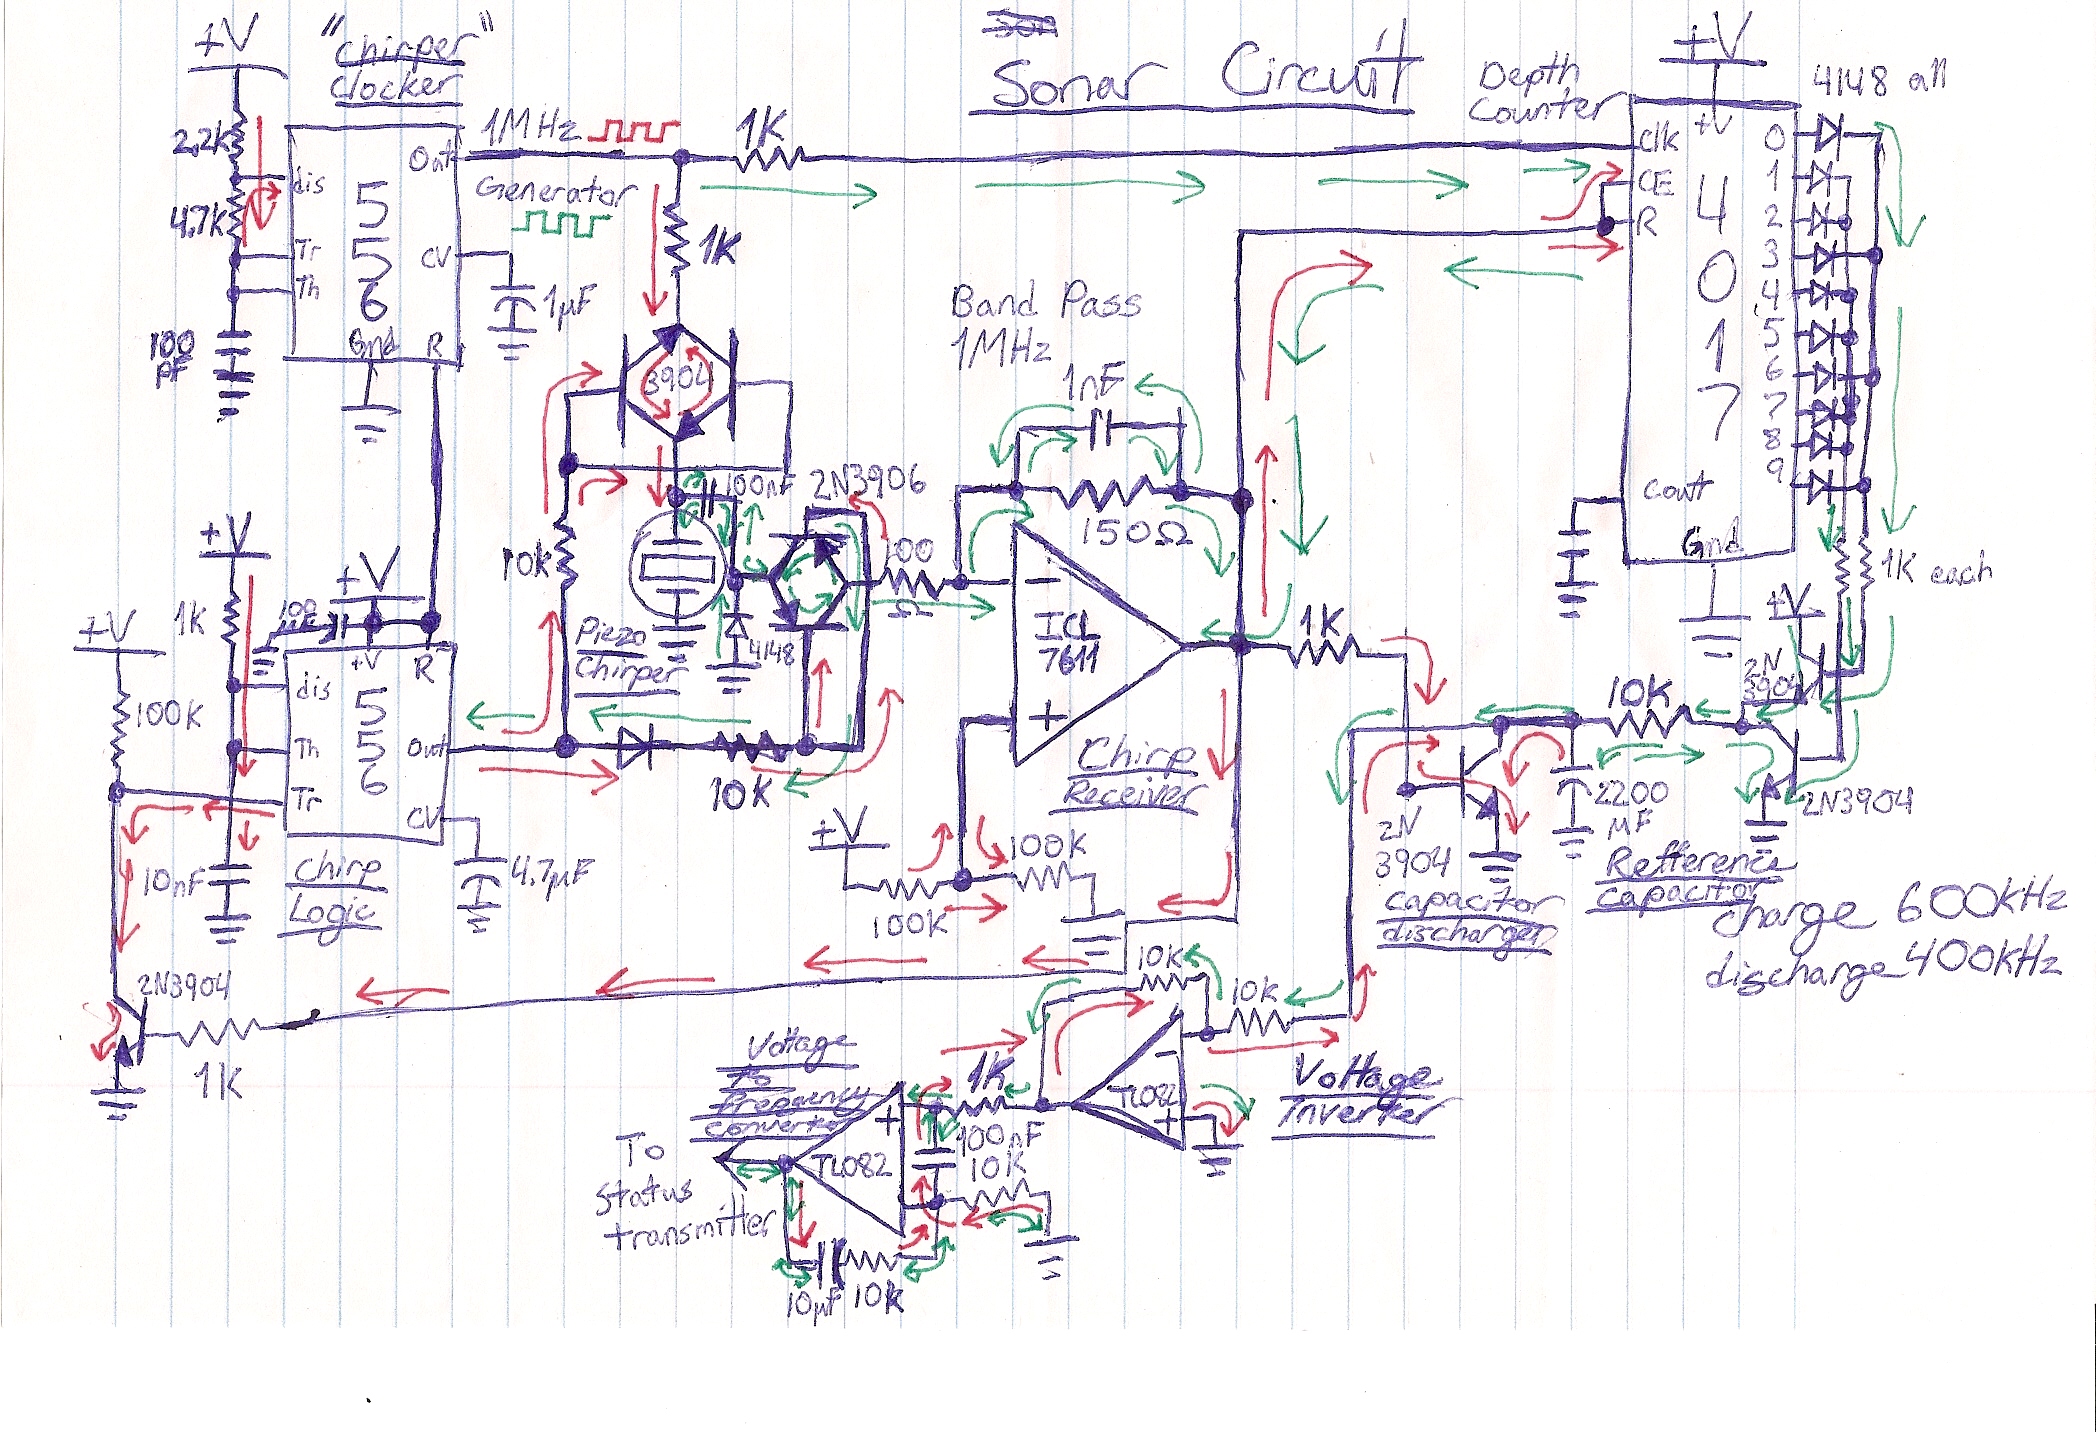 Sonar Circuit
+V
"chirper"
clocker
2.2k
dis
4.7k
Tr
Th
100
pF
556
Out
CV
Gnd
R
1µF
1MHz
Generator
1K
1K
3904
Depth
Counter
+V
4148 all
+V
Clk
CE
R
4017
0
1
2
3
4
5
6
7
8
9
Cout
Gnd
1K each
Band Pass
1MHz
1nF
150Ω
100nF
2N3906
10k
100
Ω
Piezo
Chirper
4148
10K
ICL
7611
−
+
Chirp
Receiver
+V
100K
100k
+V
1K
+V
+V
100K
+V
R
dis
Th
Tr
556
Out
CV
10nF
4.7µF
Chirp
Logic
2N3904
1K
1K
+V
2N
3904
10K
2N3904
2N
3904
capacitor
discharger
2200
µF
Refference
capacitor
charge 600kHz
discharge 400kHz
10K
10K
−
+
TL082
Voltage
Inverter
Voltage
to
frequency
converter
1K
100nF
10K
+
TL082
To
status
transmitter
10µF 10k